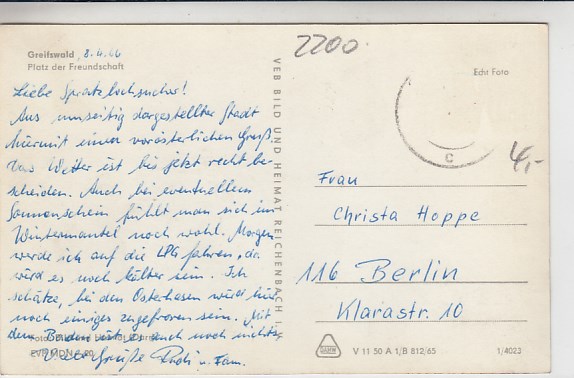 Greifswald 8.4.66
Platz der Freundschaft
Aus umseitig dargestellter Stadt
hiermit einen vorösterlichen Gruß.
Das Wetter ist bis jetzt recht be-
scheiden. Auch bei eventuellem
Sonnenschein fühlt man sich im
Wintermantel noch wohl. Morgen
werde ich auf die LPG fahren, da
wird es noch kälter sein. Ich
schätze, bei den Osterhasen wird hier
noch einiges zugefroren sein. Mit
dem Baden ist auch noch nichts.
Viele Grüße
u. Fam.
VEB BILD UND HEIMAT REICHENBACH I. V.
2200
Echt Foto
C
4,-
Frau
Christa Hoppe
116 Berlin
Klarastr. 10
V 11 50 A 1/B 812/65
1/4023